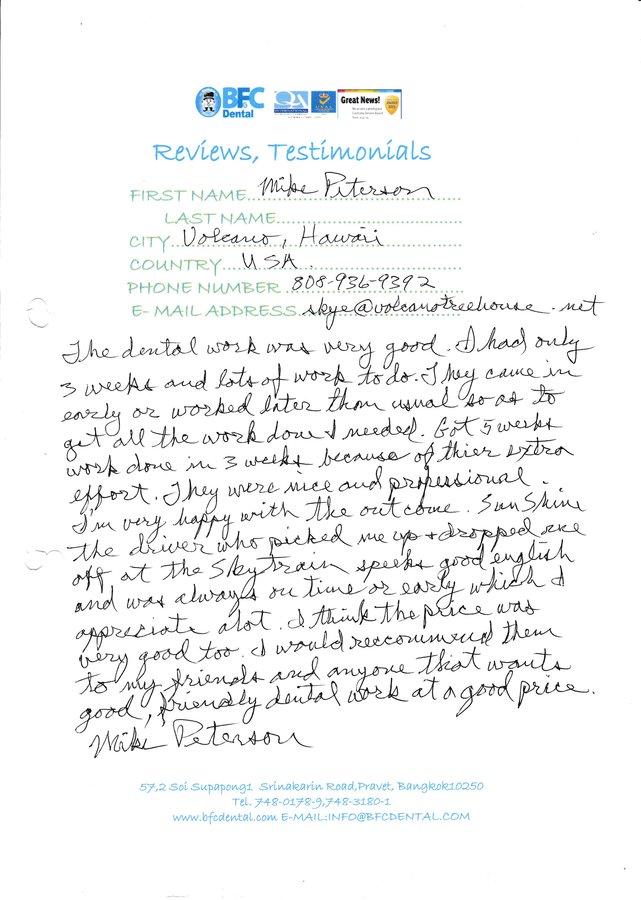 BFC
Dental
QA
INTERNATIONAL
UKAS
Great News!
Reviews, Testimonials
FIRST NAME Mike Peterson
LAST NAME
CITY Volcano, Hawaii
COUNTRY USA.
PHONE NUMBER 808-936-9392
E-MAIL ADDRESS skye@volcanotreehouse.net
The dental work was very good. I had only
3 weeks and lots of work to do. They came in
early or worked later than usual so as to
get all the work done I needed. Got 5 weeks
work done in 3 weeks because of thier extra
effort. They were nice and professional.
I'm very happy with the outcome. SunShine
the driver who picked me up + dropped me
off at the Skytrain speeks good english
and was always on time or early which I
appreciate alot. I think the price was
very good too. I would reccommend them
to my friends and anyone that wants
good, friendly dental work at a good price.
Mike Peterson
57,2 Soi Supapong1 Srinakarin Road,Pravet, Bangkok10250
Tel. 748-0178-9,748-3180-1
www.bfcdental.com E-MAIL:INFO@BFCDENTAL.COM